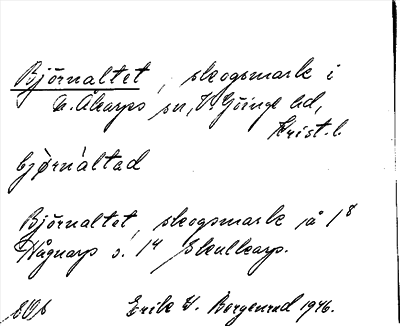 Björnaltet, skogsmark i
N. Åkarps sn, V. Göinge hd,
Krist. l.
bjørnáltad
Björnaltet, skogsmark å 1⁸
Hågnarp o. 1⁴ Skulkarp.
Erik W. Borgenrud 1946.